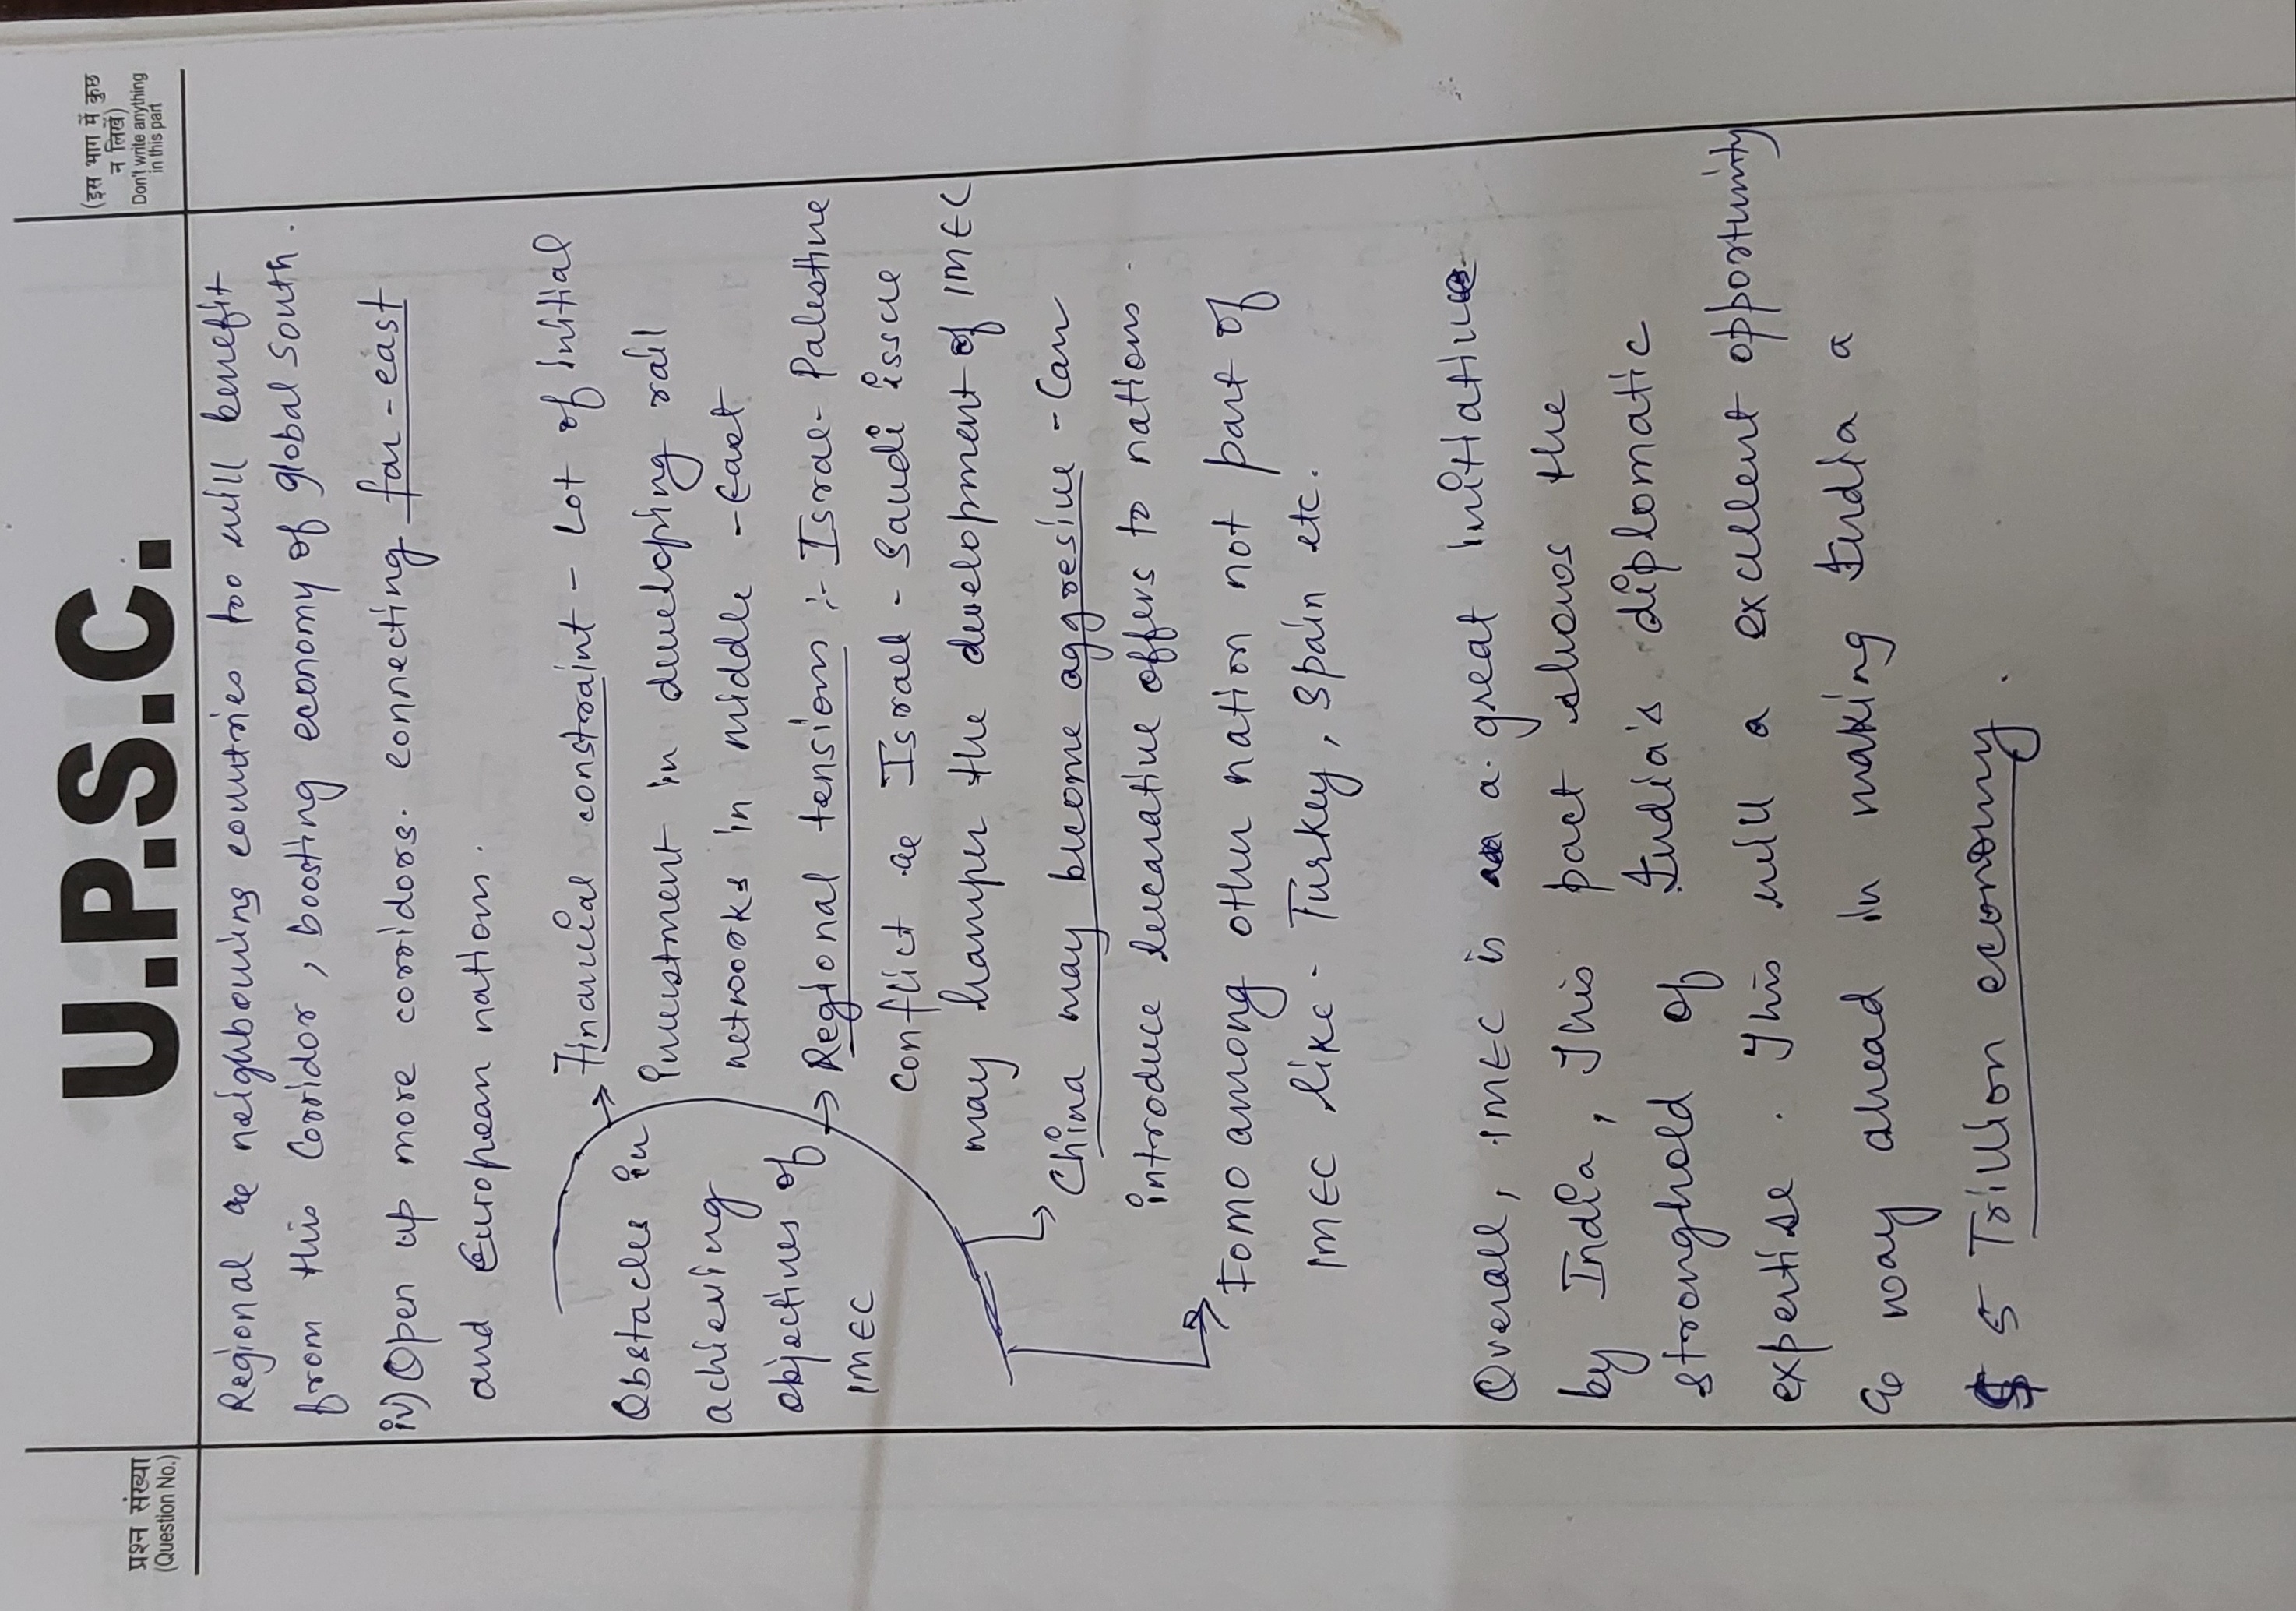 U.P.S.C.
प्रश्न संख्या
(Question No.)
(इस भाग में कुछ
न लिखें)
Don't write anything
in this part
Regional & neighbouring countries too will benefit
from this Corridor, boosting economy of global South.
iv) Open up more corridors. connecting far-east
and European nations.
Obstacles in
achieving
objectives of
IMEC
→ Financial constraint - Lot of initial
investment in developing rail
networks in middle-East
→ Regional tensions :- Israel-Palestine
conflict & Israel-Saudi issue
may hamper the development of IMEC
→ China may become aggresive - Can
introduce lucarative offers to nations.
→ Fomo among other nation not part of
IMEC like - Turkey, Spain etc.
Overall, IMEC is a great initiative
by India, This pact shows the
stronghold of India's diplomatic
expertise. This will a excellent opportunity
& way ahead in making India a
$ 5 Trillion economy.